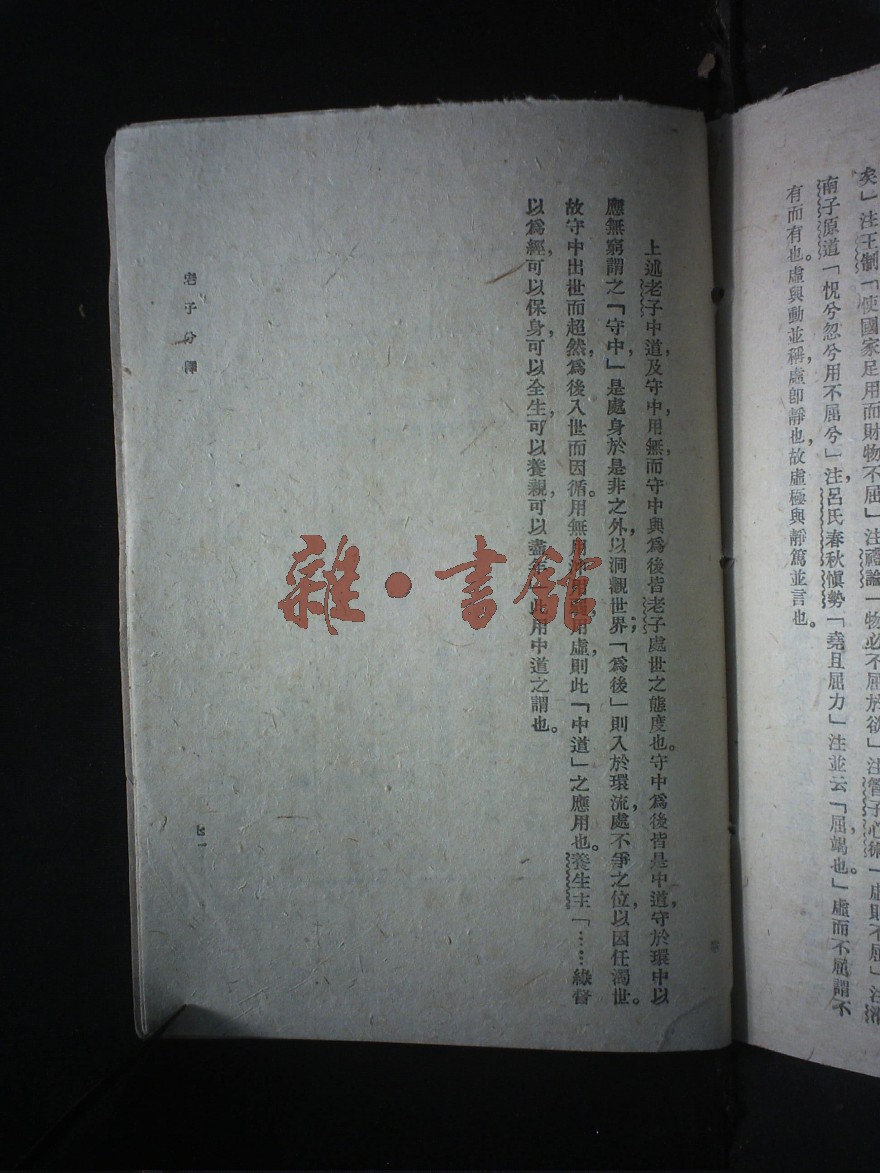 矣」注王制「使國家足用而財物不屈」注禮論「物必不屈於欲」注管子心術「虛則不屈」注淮
南子原道「怳兮忽兮用不屈兮」注呂氏春秋愼勢「堯且屈力」注並云「屈竭也」虛而不屈謂不
有而有也。虛與動並稱，虛卽靜也，故虛極與靜篤並言也。
上述老子中道，及守中，用無，而守中與爲後，皆老子處世之態度也。守中爲後皆是中道，守於環中以
應無窮，謂之「守中」，是處身於是非之外，以洞觀世界；「爲後」則入於環流，處不爭之位，以因任濁世。
故守中出世而超然，爲後入世而因循。用無
用虛，則此「中道」之應用也。養生主「……緣督
以爲經，可以保身，可以全生，可以養親，可以盡年」此用中道之謂也。
老子分釋
七一
雜·書館